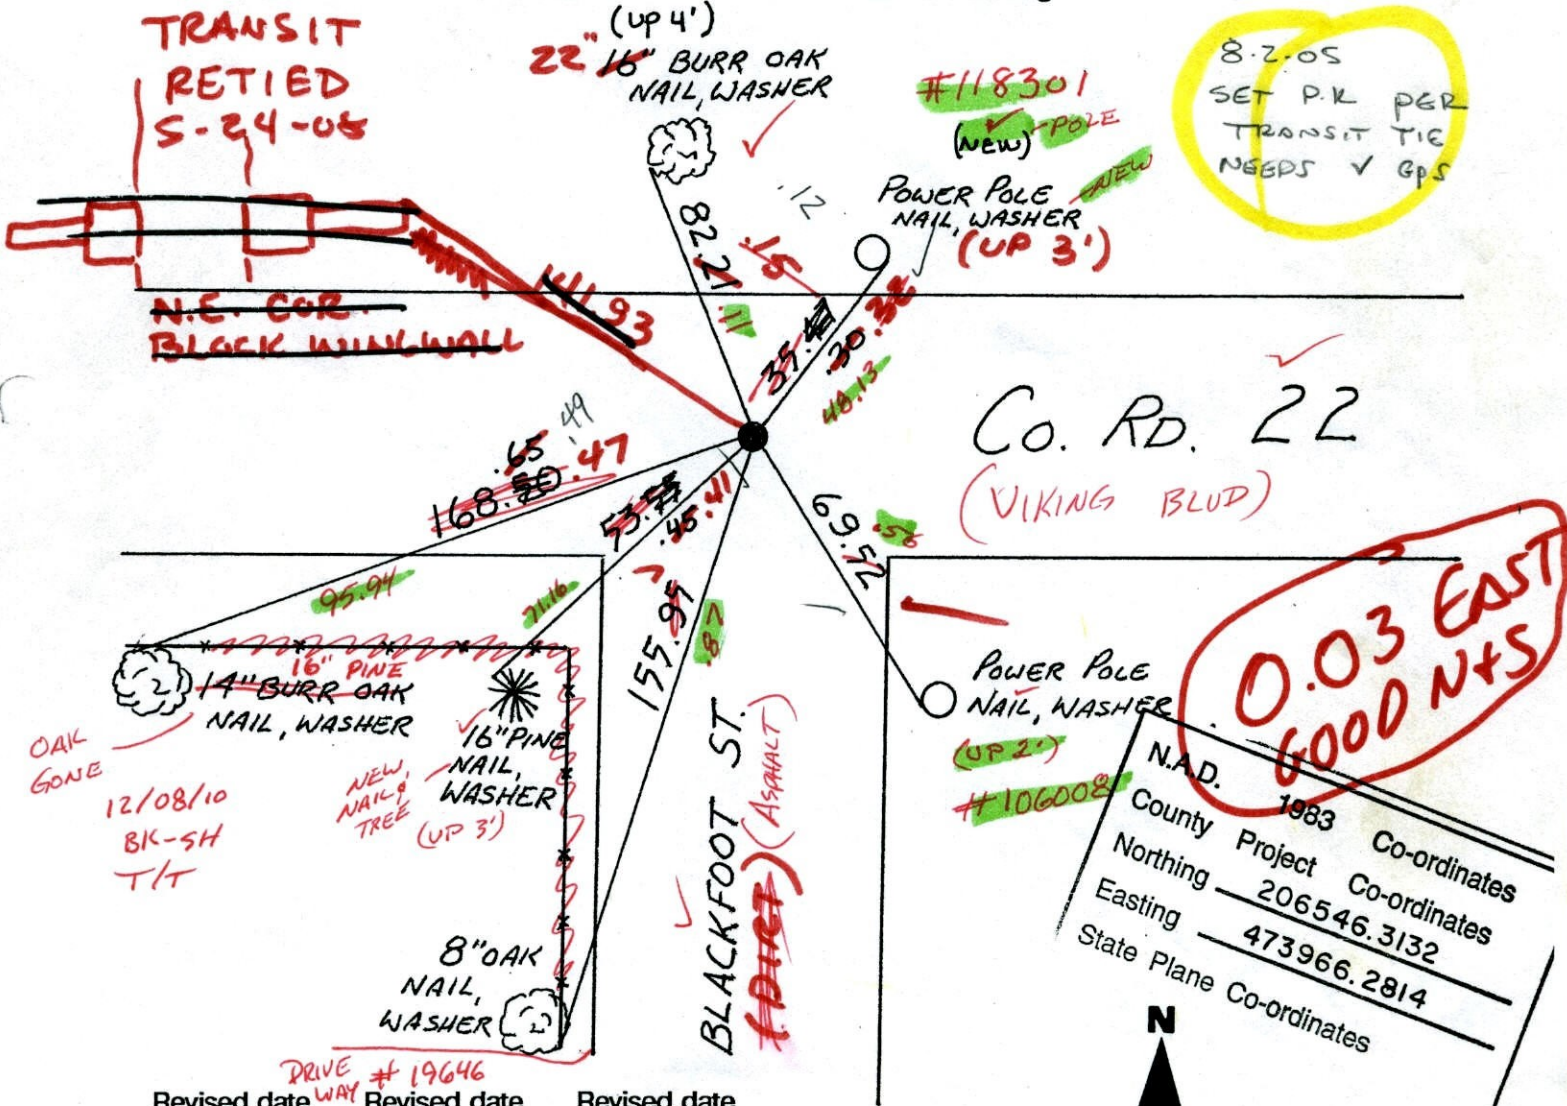 TRANSIT
RETIED
5-24-05
(UP 4')
22" 16" BURR OAK
NAIL, WASHER
#118301
(NEW) -POLE
NEW
POWER POLE
NAIL, WASHER
(UP 3')
8.2.05
SET P.K PER
TRANSIT TIE
NEEDS ✓ GPS
N.E. COR.
BLOCK WINGWALL
41.93
82.21
.11
.12
.15
35.47
.30 .38
48.13
Co. RD. 22
(VIKING BLVD)
.65 .49
168.50 .47
53.55
.45 .41
69.52
.56
95.94
71.16
155.99
.87
16" PINE
14" BURR OAK
NAIL, WASHER
OAK
GONE
12/08/10
BK-SH
T/T
16" PINE
NAIL,
WASHER
(UP 3')
NEW
NAIL &
TREE
8" OAK
NAIL,
WASHER
DRIVE
WAY # 19646
BLACKFOOT ST.
(DIRT) (ASPHALT)
POWER POLE
NAIL, WASHER
(UP 2')
#106008
0.03 EAST
GOOD N+S
N.A.D. 1983 Co-ordinates
County Project Co-ordinates
Northing 206546.3132
Easting 473966.2814
State Plane Co-ordinates
N
Revised date Revised date Revised date